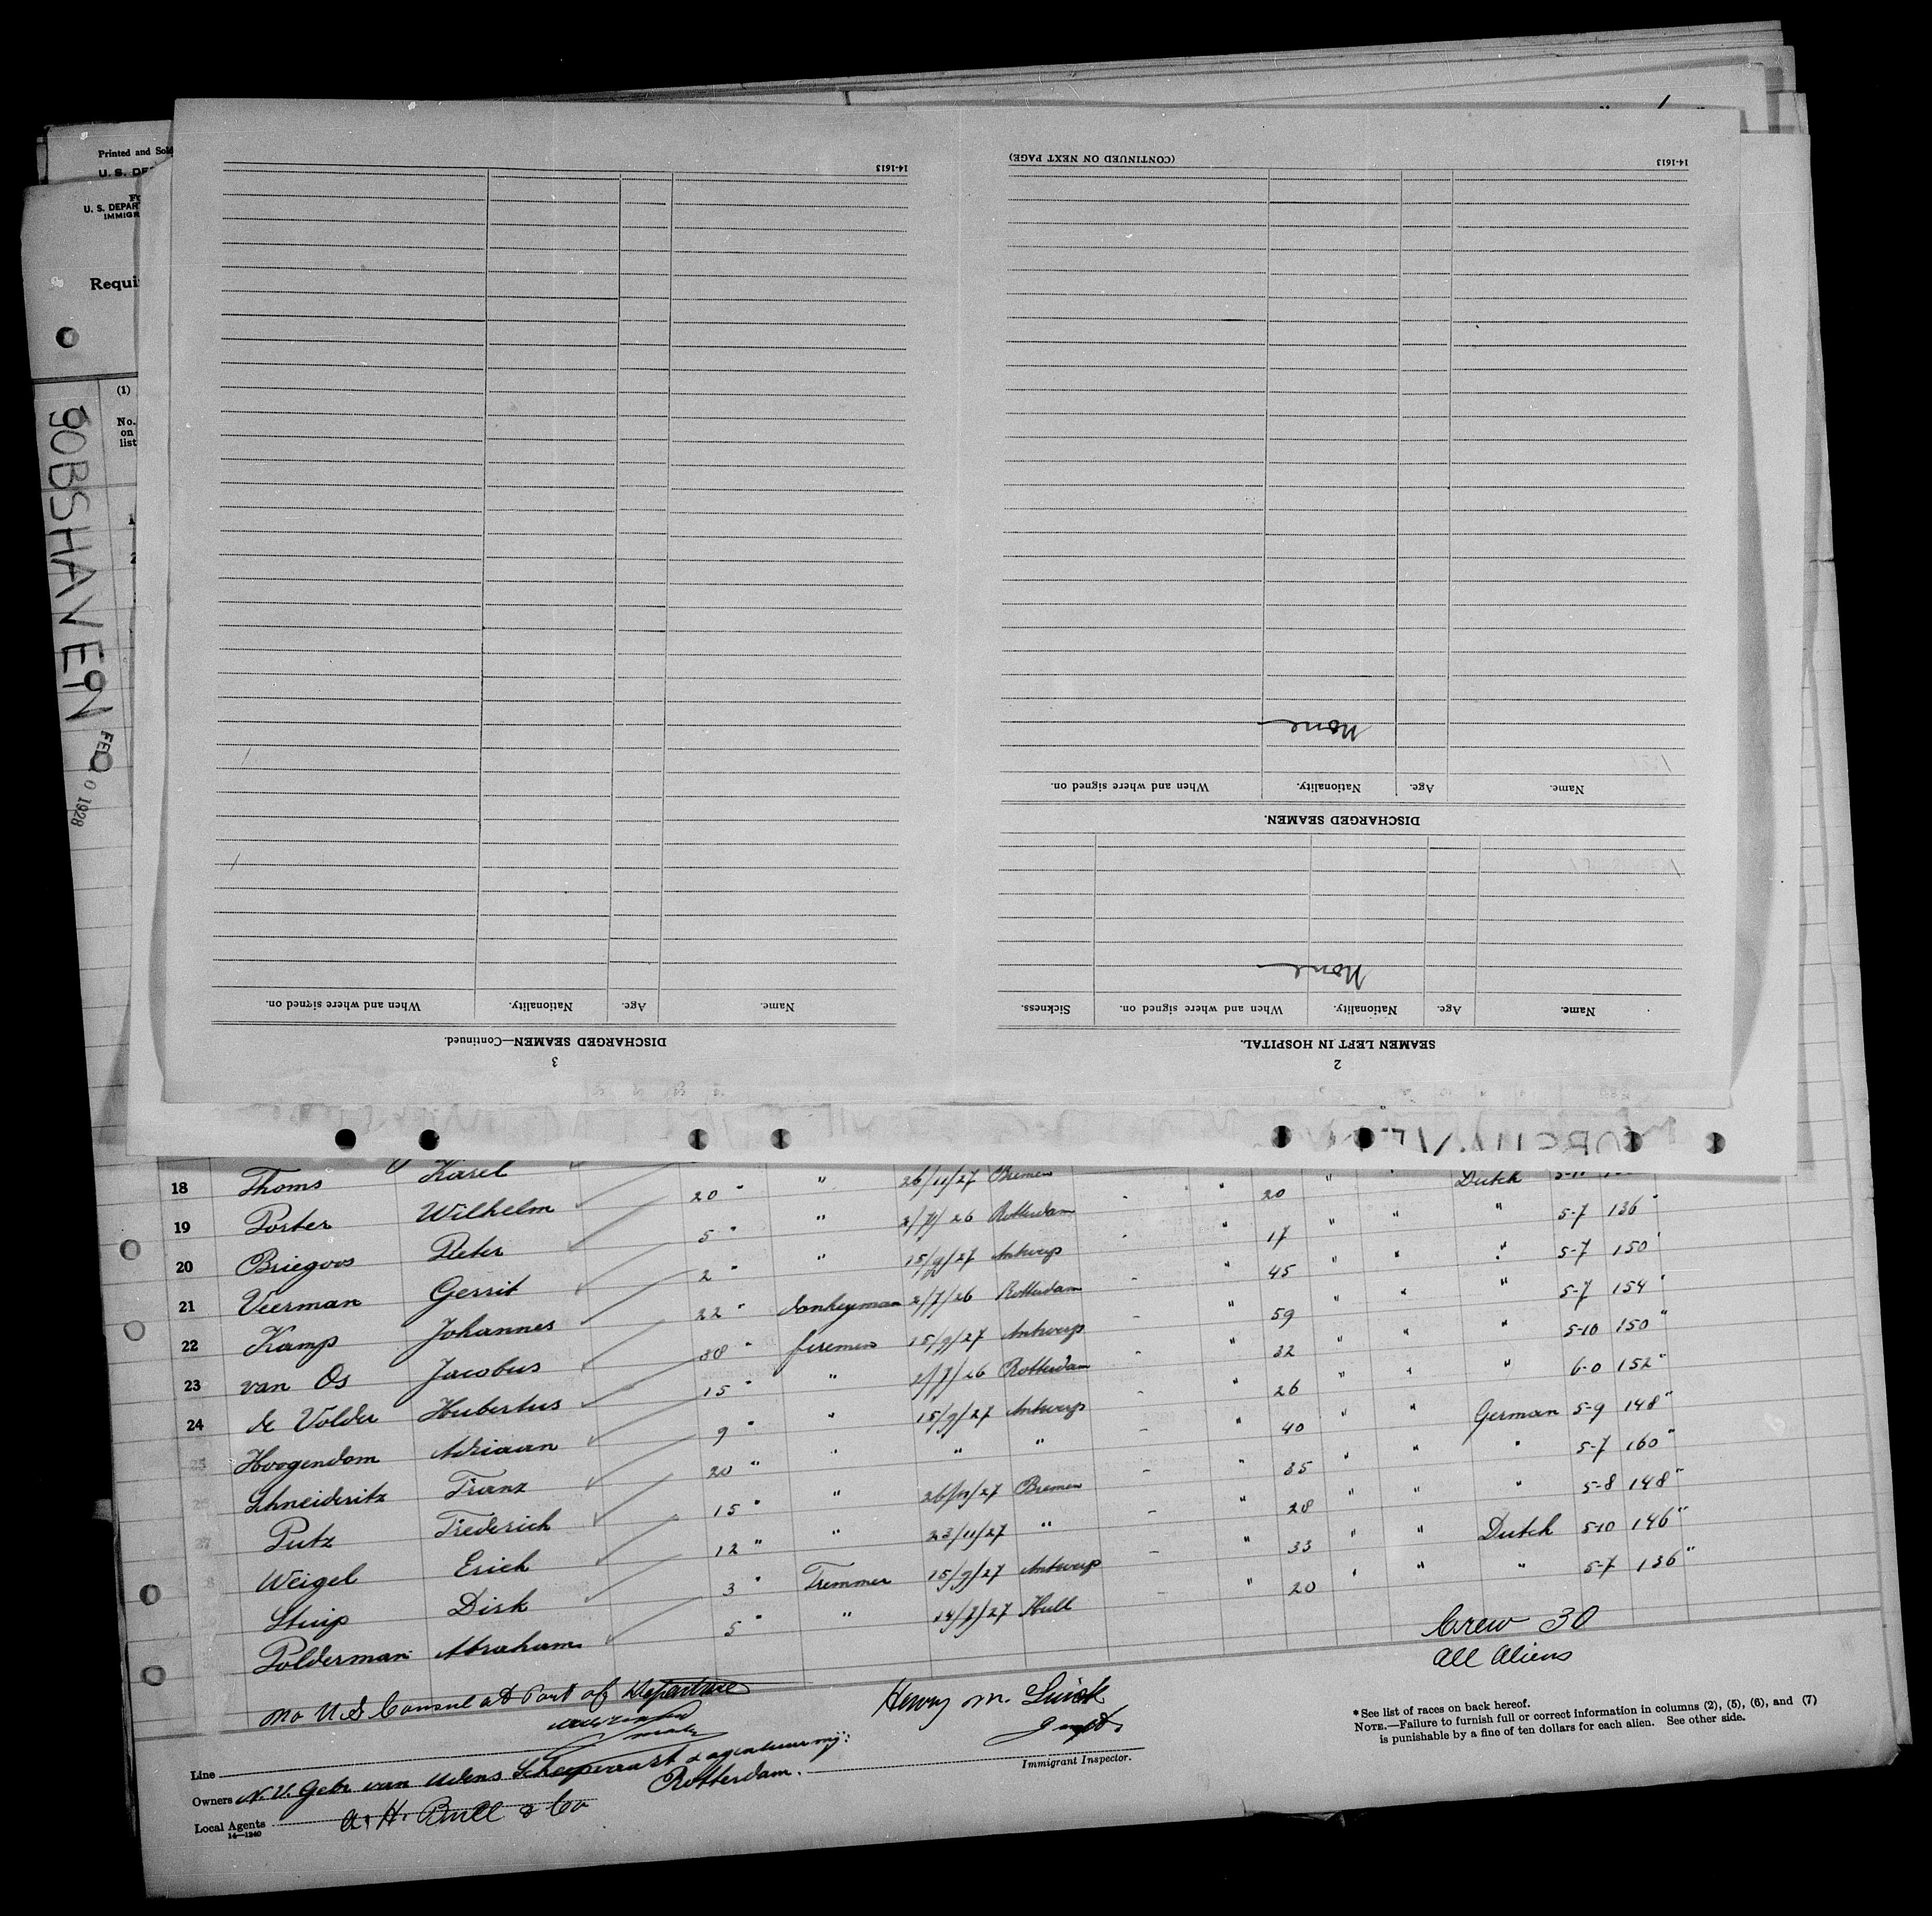 Printed and Sold
U. S. DE
U. S. DEPAR
IMMIGR
Requi
(1)
No.
on
list
GOBSHAVEN
FEB 0 1928
14-1613
DISCHARGED SEAMEN—Continued.
3
Name. Age. Nationality. When and where signed on.
2
SEAMEN LEFT IN HOSPITAL.
Name. Age. Nationality. When and where signed on. Sickness.
None
DISCHARGED SEAMEN.
Name. Age. Nationality. When and where signed on.
None
14-1613 (CONTINUED ON NEXT PAGE)
18 Thoms Karel 20 " " 26/11/27 Bremen " 20 " Dutch
19 Porter Wilhelm 5 " " 2/7/26 Rotterdam " 17 " " " 5-7 136 "
20 Briegoos Pieter 2 " " 15/9/27 Antwerp " 45 " " " 5-7 150 "
21 Veerman Gerrit 22 " donkeyman 2/7/26 Rotterdam - " 59 " " " 5-7 154 "
22 Kamp Johannes 38 " firemen 15/9/27 Antwerp - " 32 " " " 5-10 150 "
23 van Os Jacobus 15 " " 2/7/26 Rotterdam - " 26 " " " 6-0 152 "
24 de Volder Hubertus 9 " " 15/9/27 Antwerp - " 40 " " German 5-9 148 "
25 Hoogendom Adriaan 20 " " " " - " 35 " " " 5-7 160 "
Schneideritz Franz 15 " " 26/11/27 Bremen - " 28 " " " 5-8 148 "
27 Putz Frederich 12 " " 23/11/27 " - " 33 " " Dutch 5-10 146 "
8 Weigel Erich 3 " Tremmer 15/9/27 Antwerp - " 20 " " " 5-7 136 "
Stuip Dirk 5 " " 14/7/27 Hull
Polderman Abraham
Crew 30
All Aliens
No U S Consul at Port of Departure
Henry M.
Immigrant Inspector.
*See list of races on back hereof.
NOTE.—Failure to furnish full or correct information in columns (2), (5), (6), and (7)
is punishable by a fine of ten dollars for each alien. See other side.
Line
Owners N.V. Gebr. van Udens Scheepvaart & agentuur mij:
Rotterdam.
Local Agents A. H. Bull & Co
14—1240